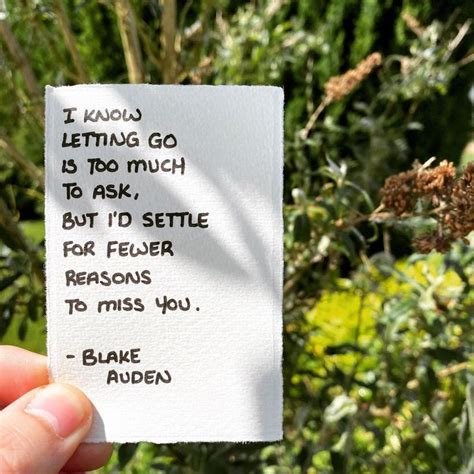 I KNOW
LETTING GO
IS TOO MUCH
TO ASK,
BUT I'D SETTLE
FOR FEWER
REASONS
TO MISS YOU.
- BLAKE
AUDEN